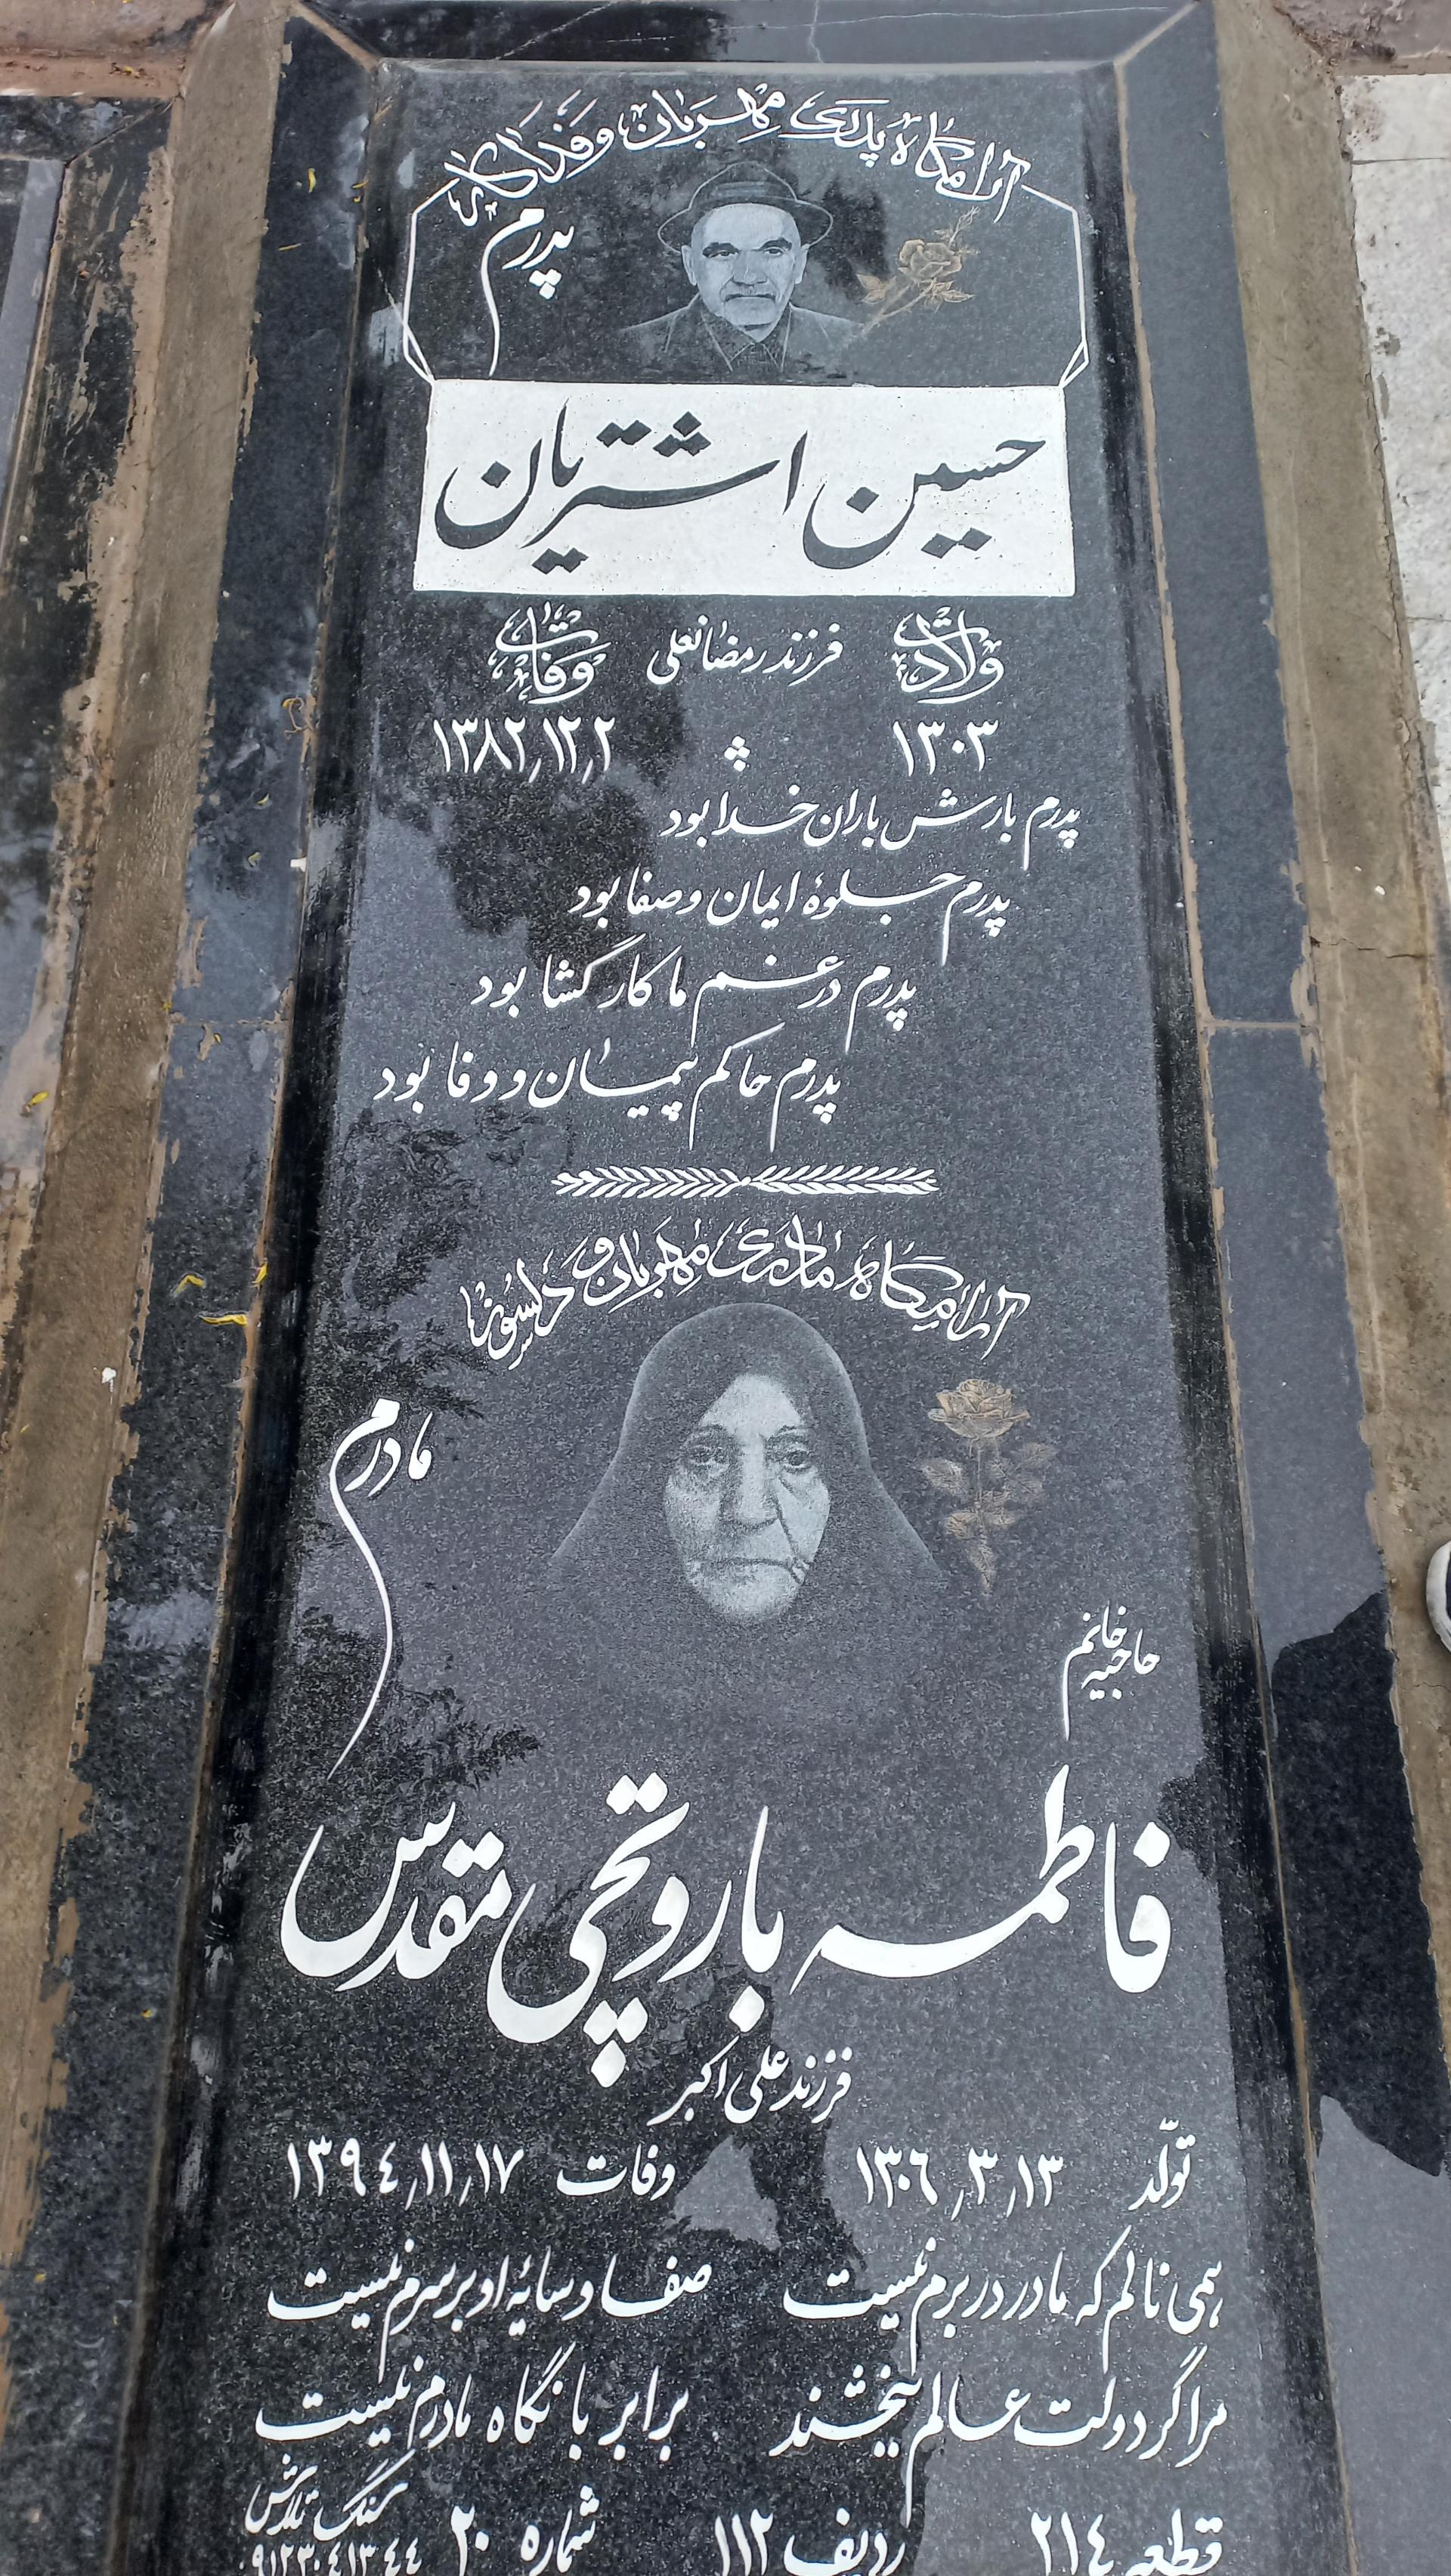 آرامگاه پدری مهربان و فداکار
پدرم
حسین اشتریان
ولادت فرزند رمضانعلی وفات
۱۳۰۳ ۱۳۸۲,۱۲,۲
پدرم بارش باران خدا بود
پدرم جلوهٔ ایمان و صفا بود
پدرم در غم ما کارگشا بود
پدرم حاکم پیمان و وفا بود
آرامگاه مادری مهربان و دلسوز
مادرم
حاجیه خانم
فاطمه باروتچی مقدس
فرزند علی اکبر
تولّد ۱۳۰۶,۳,۱۳ وفات ۱۳۹٤,۱۱,۱۷
همی نالم که مادر در برم نیست صفا و سایهٔ او بر سرم نیست
مرا گر دولت عالم ببخشند برابر با نگاه مادرم نیست
قطعه ۲۱٤ ردیف ۱۱۲ شماره ۲۰ سنگ تلاش
۰۹۱۲۳۰٤۱۳٤٤